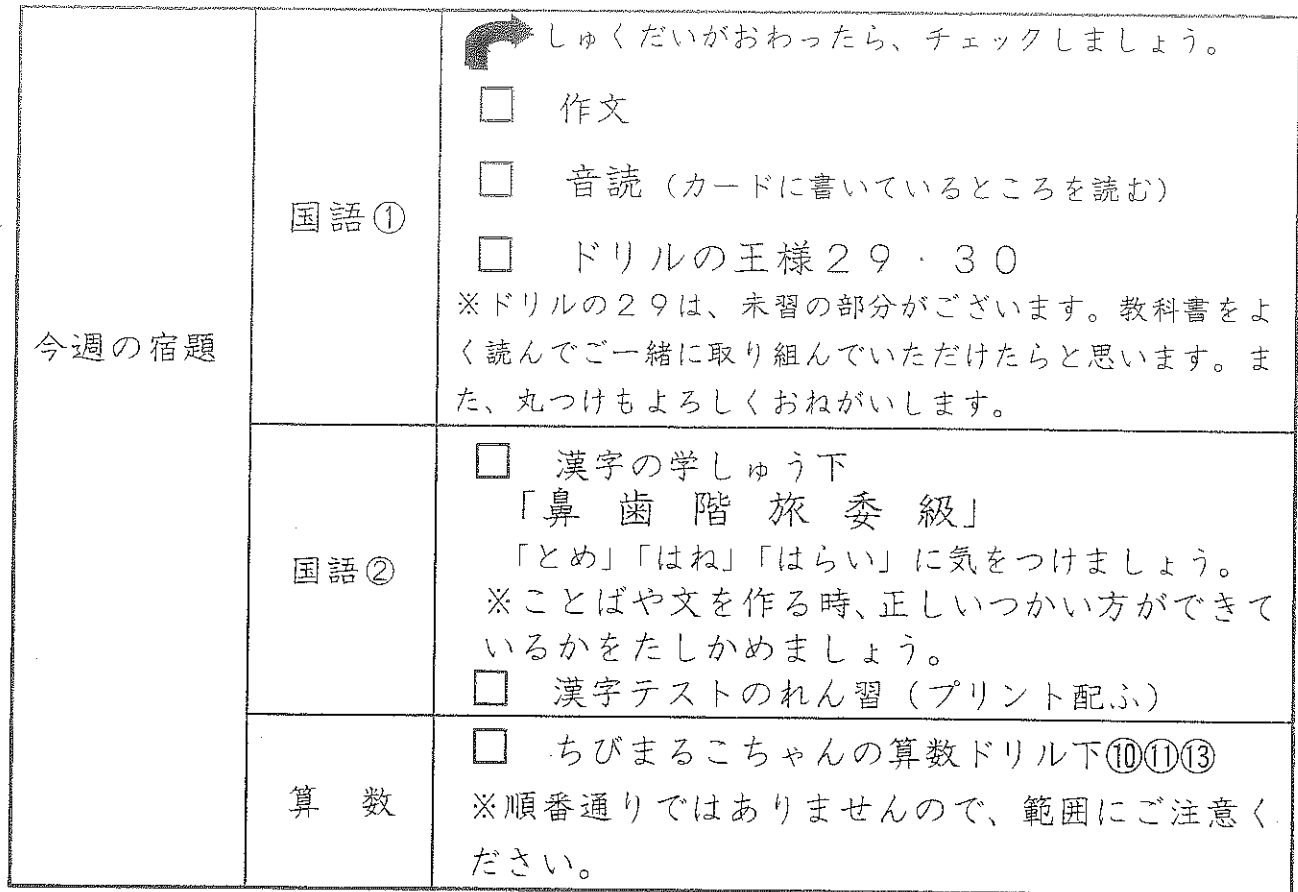 今週の宿題
国語①
しゅくだいがおわったら、チェックしましょう。
□ 作文
□ 音読（カードに書いているところを読む）
□ ドリルの王様２９・３０
※ドリルの２９は、未習の部分がございます。教科書をよ
く読んでご一緒に取り組んでいただけたらと思います。ま
た、丸つけもよろしくおねがいします。
国語②
□ 漢字の学しゅう下
「鼻 歯 階 旅 委 級」
「とめ」「はね」「はらい」に気をつけましょう。
※ことばや文を作る時、正しいつかい方ができて
いるかをたしかめましょう。
□ 漢字テストのれん習（プリント配ふ）
算 数
□ ちびまるこちゃんの算数ドリル下⑩⑪⑬
※順番通りではありませんので、範囲にご注意く
ださい。